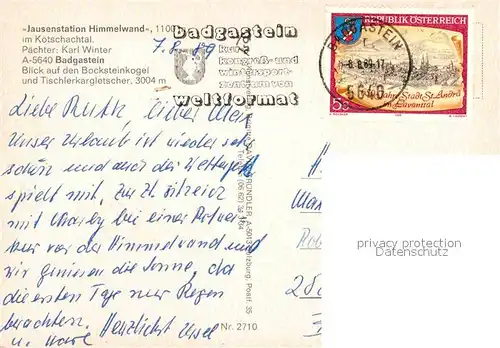 »Jausenstation Himmelwand«, 1100
im Kötschachtal.
Pächter: Karl Winter
A-5640 Badgastein
Blick auf den Bocksteinkogel
und Tischlerkargletscher, 3004 m
7.8.89
badgastein
kur
kongreß- und
wintersport-
zentrum von
weltformat
REPUBLIK ÖSTERREICH
BADGASTEIN
-8.8.89-17
5640
Jahre Stadt St. Andrä
im Lavanttal
Liebe Ruth, lieber
Unser Urlaub ist wieder sehr
schön und auch der Wettergott
spielt mit. Zur Zt. sitzen
mit bei einer
nur vor der Himmelwand und
wir genießen die Sonne, da
die ersten Tage nur Regen
brachten. Herzlichst Ursel
u.
GRÜNDLER, A-5013 Salzburg, Postf. 35
Nr. 2710
privacy protection
Datenschutz